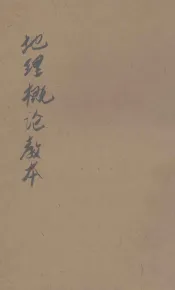 地理概论教本